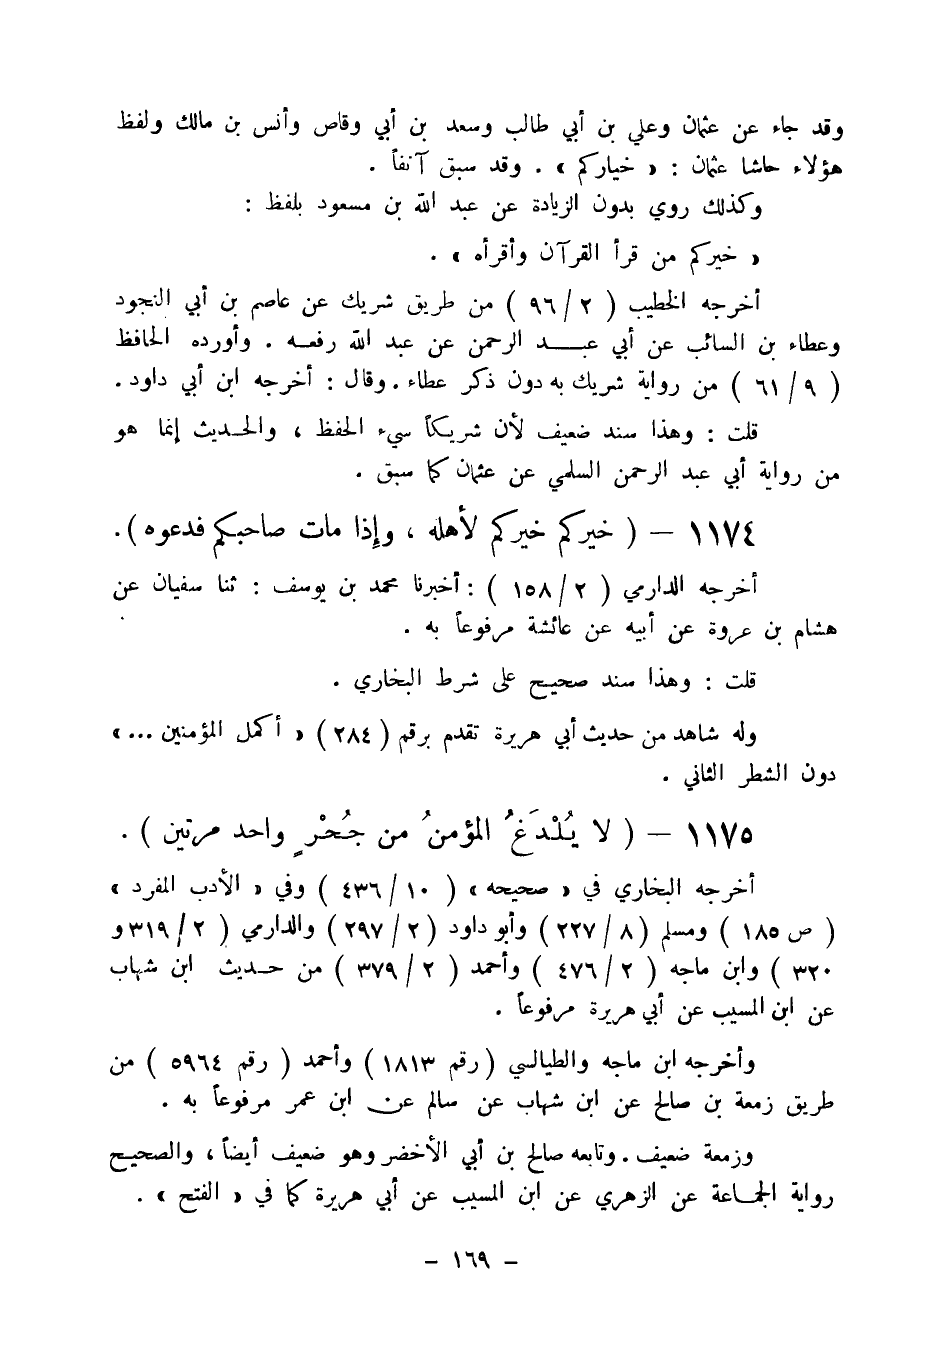 وقد جاء عن عثمان وعلي بن أبي طالب وسعد بن أبي وقاص وأنس بن مالك ولفظ
هؤلاء حاشا عثمان : « خياركم » . وقد سبق آنفاً .
وكذلك روي بدون الزيادة عن عبد الله بن مسعود بلفظ :
« خيركم من قرأ القرآن وأقرأه » .
أخرجه الخطيب ( ٢ / ٩٦ ) من طريق شريك عن عاصم بن أبي النجود
وعطاء بن السائب عن أبي عبد الرحمن عن عبد الله رفعه . وأورده الحافظ
( ٩ / ٦١ ) من رواية شريك به دون ذكر عطاء . وقال : أخرجه ابن أبي داود .
قلت : وهذا سند ضعيف لأن شريكاً سيء الحفظ ، والحديث إنما هو
من رواية أبي عبد الرحمن السلمي عن عثمان كما سبق .
١١٧٤ – ( خيركم خيركم لأهله ، وإذا مات صاحبكم فدعوه ) .
أخرجه الدارمي ( ٢ / ١٥٨ ) : أخبرنا محمد بن يوسف : ثنا سفيان عن
هشام بن عروة عن أبيه عن عائشة مرفوعاً به .
قلت : وهذا سند صحيح على شرط البخاري .
وله شاهد من حديث أبي هريرة تقدم برقم ( ٢٨٤ ) « أكمل المؤمنين ... »
دون الشطر الثاني .
١١٧٥ – ( لا يُلْدَغُ المؤمنُ من جُحْرٍ واحد مرتين ) .
أخرجه البخاري في « صحيحه » ( ١٠ / ٤٣٦ ) وفي « الأدب المفرد »
( ص ١٨٥ ) ومسلم ( ٨ / ٢٢٧ ) وأبو داود ( ٢ / ٢٩٧ ) والدارمي ( ٢ / ٣١٩ و
٣٢٠ ) وابن ماجه ( ٢ / ٤٧٦ ) وأحمد ( ٢ / ٣٧٩ ) من حديث ابن شهاب
عن ابن المسيب عن أبي هريرة مرفوعاً .
وأخرجه ابن ماجه والطيالسي ( رقم ١٨١٣ ) وأحمد ( رقم ٥٩٦٤ ) من
طريق زمعة بن صالح عن ابن شهاب عن سالم عن ابن عمر مرفوعاً به .
وزمعة ضعيف . وتابعه صالح بن أبي الأخضر وهو ضعيف أيضاً ، والصحيح
رواية الجماعة عن الزهري عن ابن المسيب عن أبي هريرة كما في « الفتح » .
– ١٦٩ –